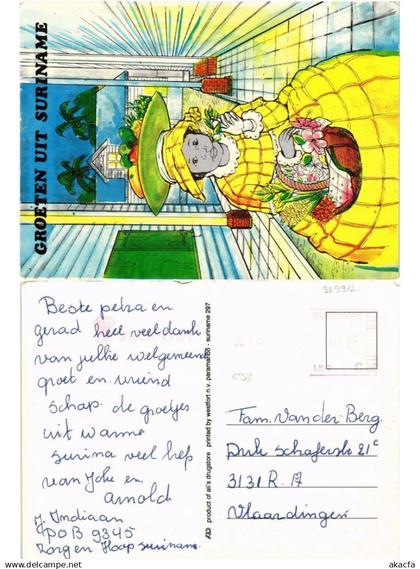 GROETEN UIT SURINAME
Beste petra en
gerad heel veel dank
van jullie welgemeende
groet en vriend
schap. de groetjes
uit warme
surina veel liefs
van Joke en
Arnold
J. Indiaan
POB 9345
Zorg en Hoop suriname.
AD product of ali's drugstore printed by westfort n.v. paramaribo - suriname 297
369912
SURINAME
Fam. Van der Berg
Dirk Schäferstr 21c
3131 R. A
Vlaardingen
akacafe.com